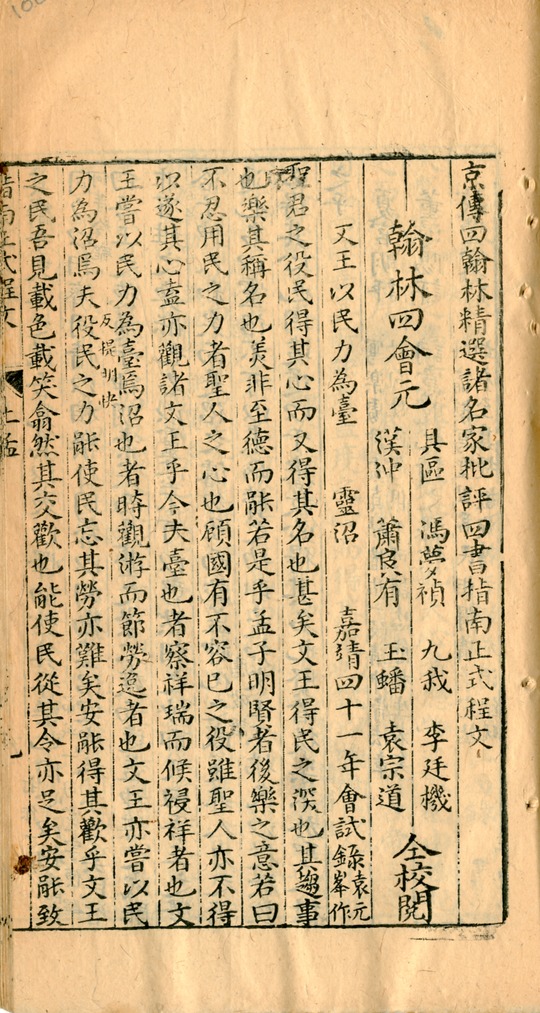 京傳四翰林精選諸名家批評四書指南正式程文
翰林四會元
具區 馮夢禎 九我 李廷機
漢冲 蕭良有 玉蟠 袁宗道
仝校閱
文王以民力為臺 靈沼 嘉靖四十一年會試錄 袁元峯作
聖君之役民得其心而又得其名也甚矣文王得民之深也其趨事
也樂其稱名也美非至德而能若是乎孟子明賢者後樂之意若曰
不忍用民之力者聖人之心也顧國有不容已之役雖聖人亦不得
以遂其心盍亦觀諸文王乎今夫臺也者察祥瑞而候祲祥者也文
王嘗以民力為臺焉沼也者時觀游而節勞逸者也文王亦嘗以民
反提明快
力為沼焉夫役民之力能使民忘其勞亦難矣安能得其歡乎文王
之民吾見載色載笑翕然其交歡也能使民從其令亦足矣安能致
指南正式程文 上孟